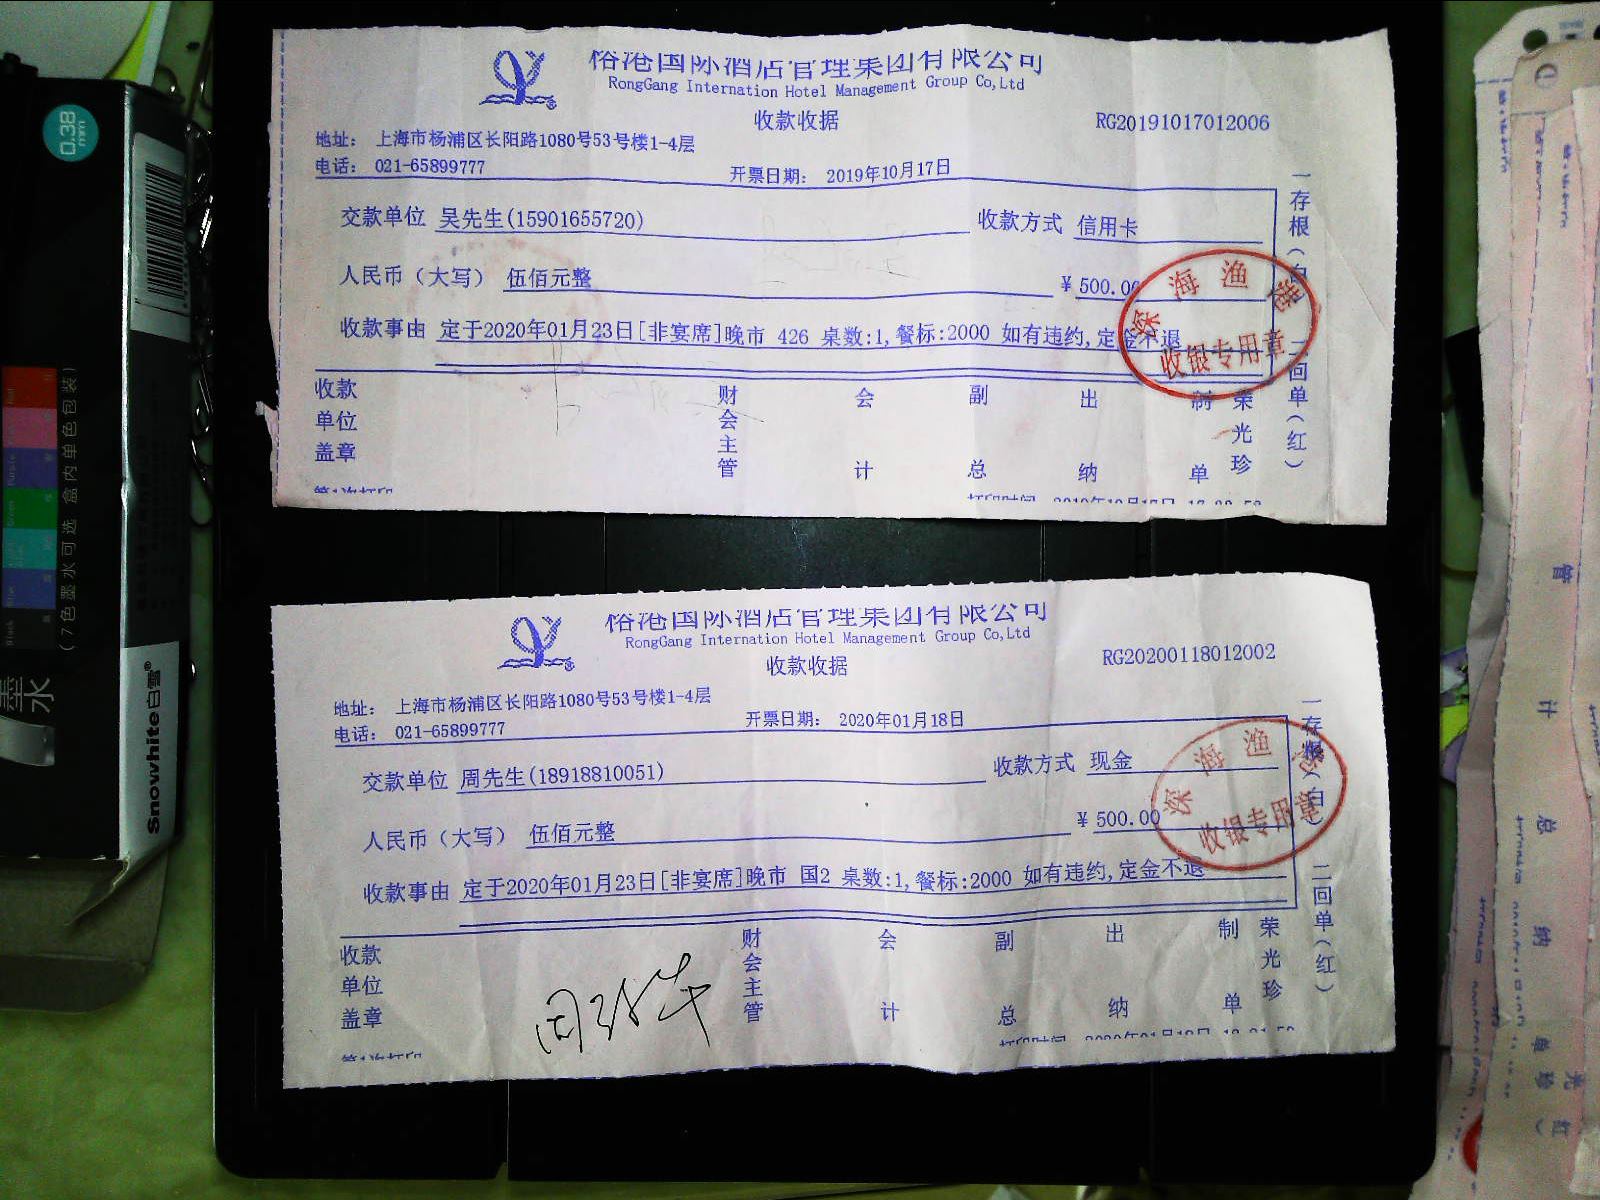 裕港国际酒店管理集团有限公司
RongGang Internation Hotel Management Group Co,Ltd
收款收据
RG20191017012006
地址： 上海市杨浦区长阳路1080号53号楼1-4层
电话： 021-65899777
开票日期： 2019年10月17日
交款单位 吴先生(15901655720) 收款方式 信用卡
人民币（大写） 伍佰元整 ¥500.00
收款事由 定于2020年01月23日[非宴席]晚市 426 桌数:1,餐标:2000 如有违约,定金不退
深海渔港
收银专用章
一存根（白） 二回单（红）
收款单位盖章 财会主管 会计 副总 出纳 制单 荣光珍
第1次打印
裕港国际酒店管理集团有限公司
RongGang Internation Hotel Management Group Co,Ltd
收款收据
RG20200118012002
地址： 上海市杨浦区长阳路1080号53号楼1-4层
电话： 021-65899777
开票日期： 2020年01月18日
交款单位 周先生(18918810051) 收款方式 现金
人民币（大写） 伍佰元整 ¥500.00
收款事由 定于2020年01月23日[非宴席]晚市 国2 桌数:1,餐标:2000 如有违约,定金不退
深海渔港
收银专用章
一存根（白） 二回单（红）
收款单位盖章 财会主管 会计 副总 出纳 制单 荣光珍
第1次打印
0.38
mm
（7色墨水可选 盒内单色包装）
墨水
Snowhite白雪®
管 计 总 纳 单